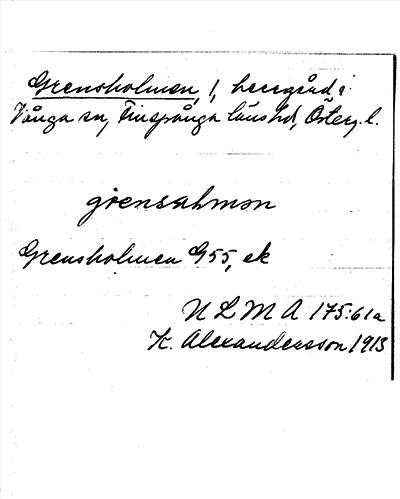 Grensholmen, 1, herrgård i
Vånga sn, Finspånga läns hd, Österg. l.
grensahmon
Grensholmen G55, ek
N L M A 175:61a
K. Alexandersson 1913